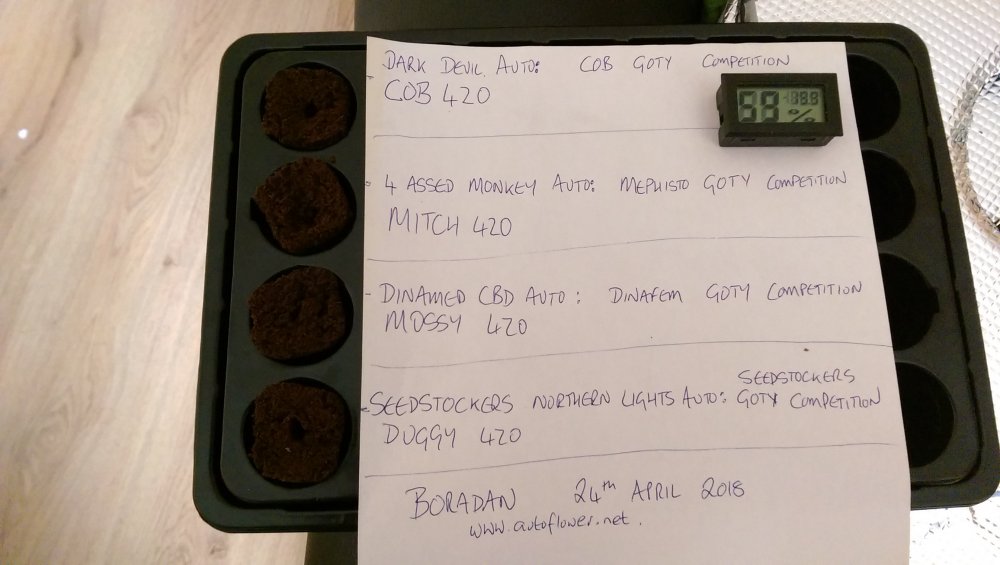 DARK DEVIL AUTO: COB GOTY COMPETITION
COB 420
68 %
4 ASSED MONKEY AUTO: MEPHISTO GOTY COMPETITION
MITCH 420
- DINAMED CBD AUTO: DINAFEM GOTY COMPETITION
MOSSY 420
SEEDSTOCKERS
- SEEDSTOCKERS NORTHERN LIGHTS AUTO: GOTY COMPETITION
DUGGY 420
BORADAN 24th APRIL 2018
www.autoflower.net.